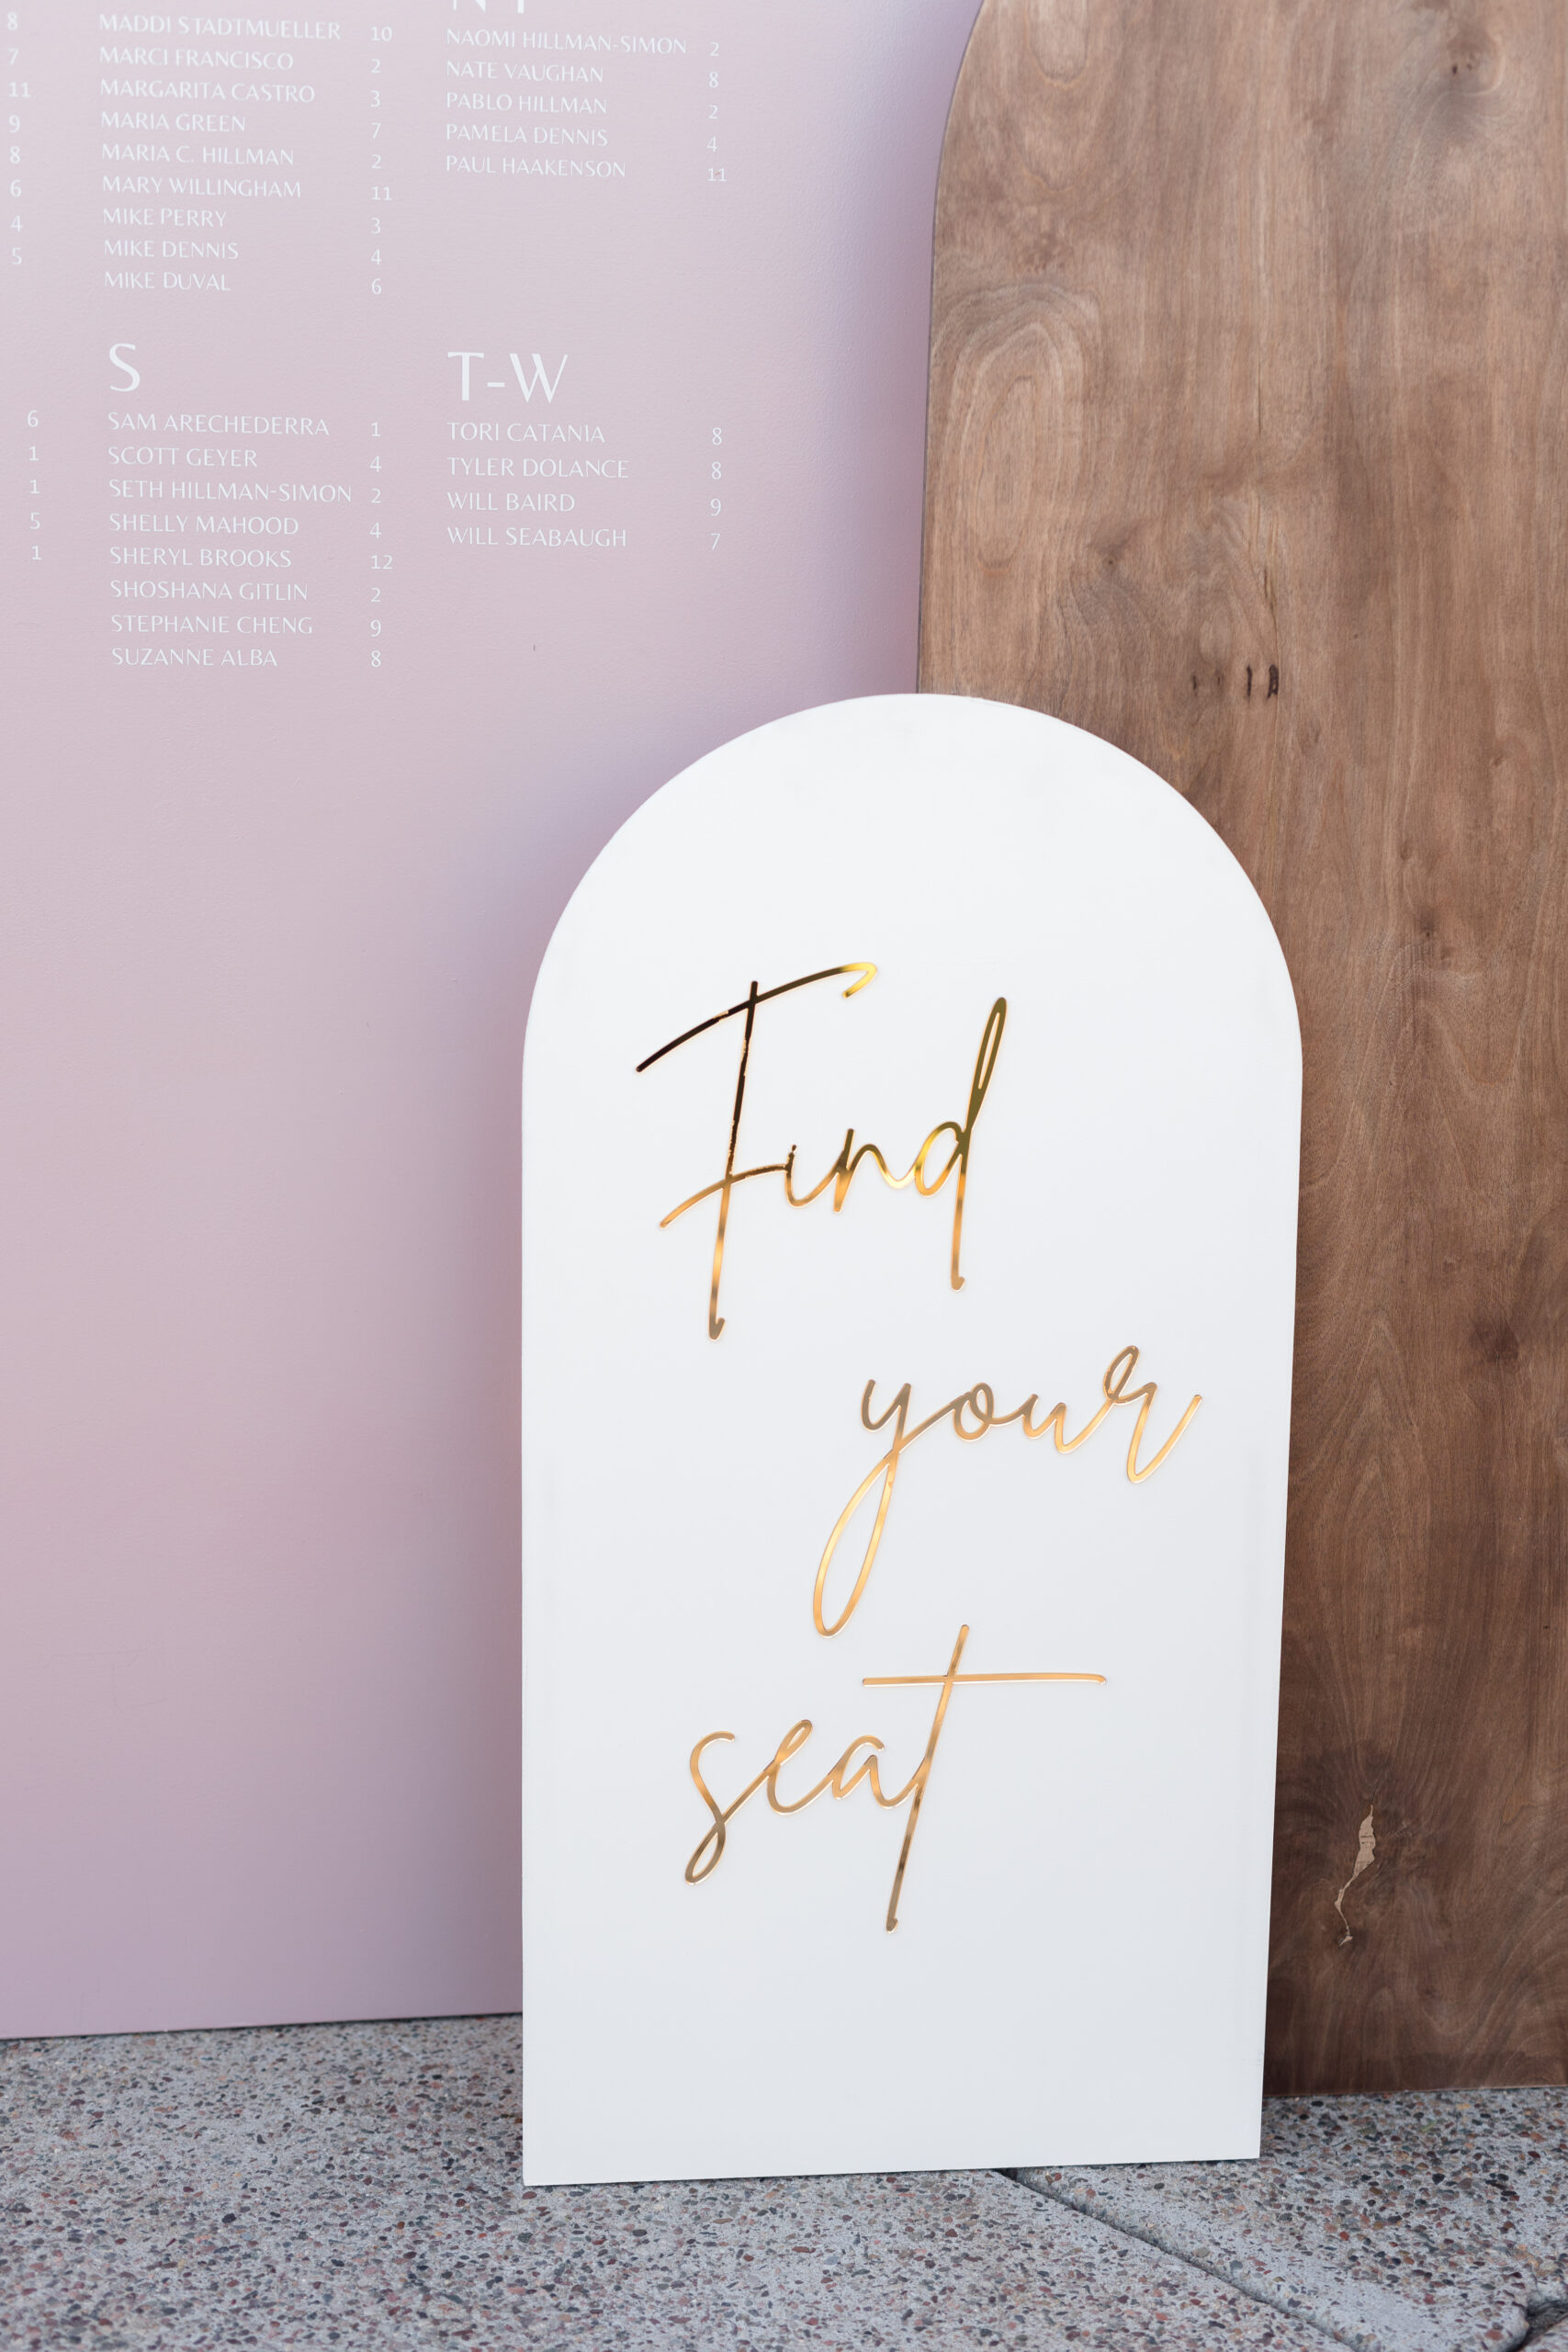 8
7
11
9
8
6
4
5
MADDI STADTMUELLER 10
MARCI FRANCISCO 2
MARGARITA CASTRO 3
MARIA GREEN 7
MARIA C. HILLMAN 2
MARY WILLINGHAM 11
MIKE PERRY 3
MIKE DENNIS 4
MIKE DUVAL 6
NAOMI HILLMAN-SIMON 2
NATE VAUGHAN 8
PABLO HILLMAN 2
PAMELA DENNIS 4
PAUL HAAKENSON 11
6
1
1
5
1
S
SAM ARECHEDERRA 1
SCOTT GEYER 4
SETH HILLMAN-SIMON 2
SHELLY MAHOOD 4
SHERYL BROOKS 12
SHOSHANA GITLIN 2
STEPHANIE CHENG 9
SUZANNE ALBA 8
T-W
TORI CATANIA 8
TYLER DOLANCE 8
WILL BAIRD 9
WILL SEABAUGH 7
Find
your
seat